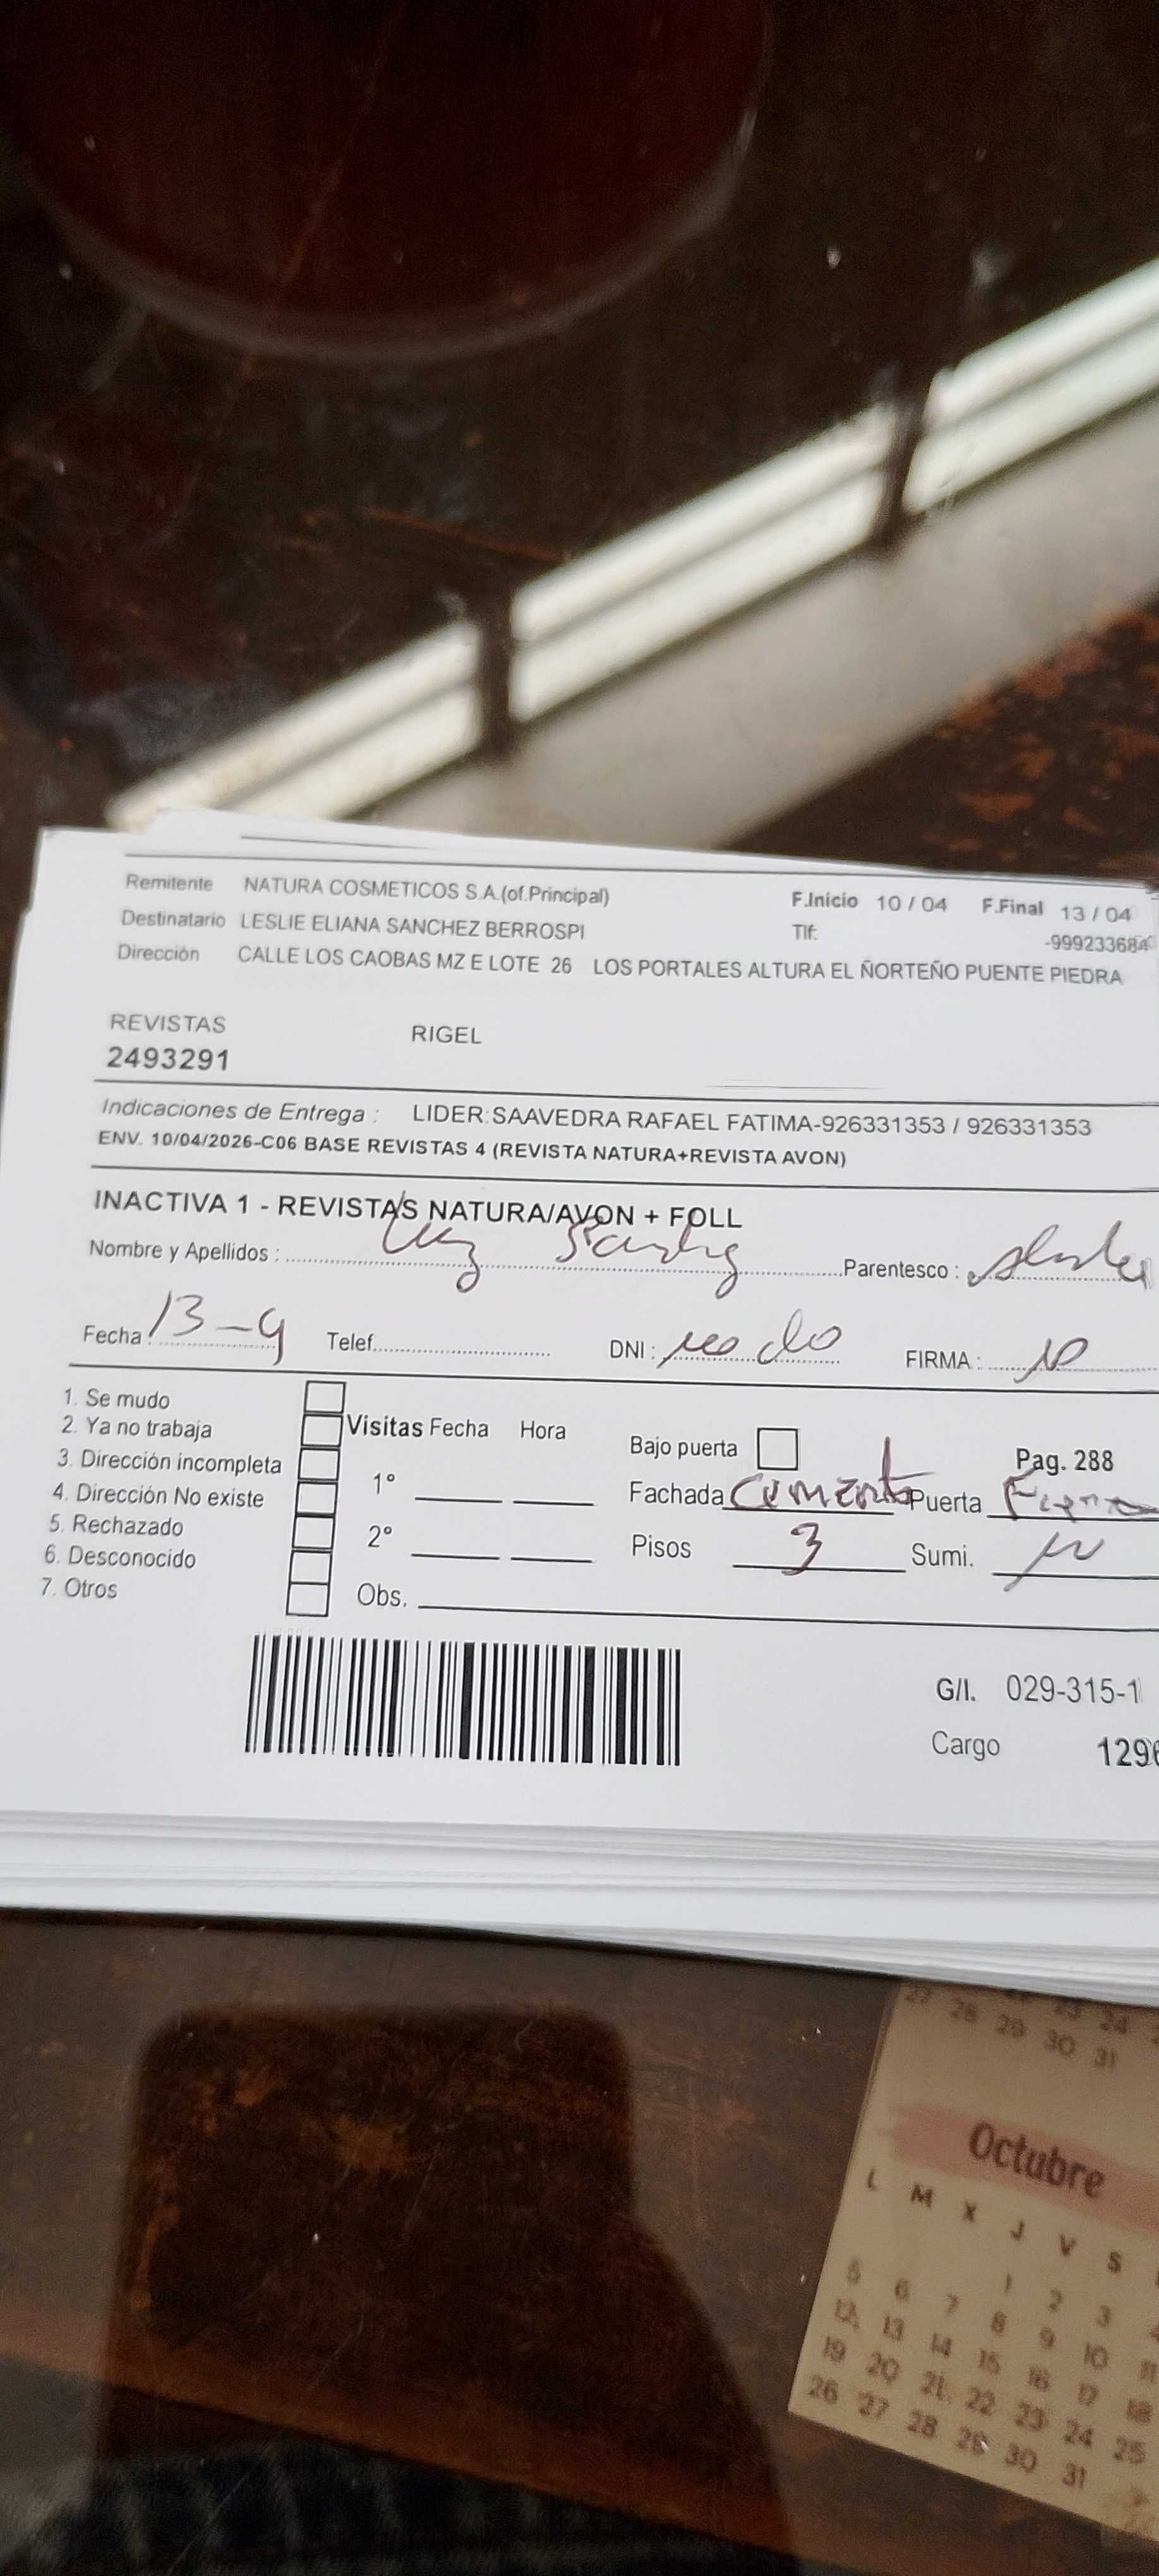 Remitente NATURA COSMETICOS S.A.(of.Principal) F.Inicio 10 / 04 F.Final 13 / 04
Destinatario LESLIE ELIANA SANCHEZ BERROSPI Tlf: -999233684
Dirección CALLE LOS CAOBAS MZ E LOTE 26 LOS PORTALES ALTURA EL ÑORTEÑO PUENTE PIEDRA
REVISTAS RIGEL
2493291
Indicaciones de Entrega : LIDER:SAAVEDRA RAFAEL FATIMA-926331353 / 926331353
ENV. 10/04/2026-C06 BASE REVISTAS 4 (REVISTA NATURA+REVISTA AVON)
INACTIVA 1 - REVISTAS NATURA/AVON + FOLL
Nombre y Apellidos : Parentesco :
Fecha 13-4 Telef. DNI : FIRMA :
1. Se mudo
2. Ya no trabaja Visitas Fecha Hora Bajo puerta Pag. 288
3. Dirección incompleta 1° Fachada Cemento Puerta
4. Dirección No existe
5. Rechazado 2° Pisos 3 Sumi.
6. Desconocido
7. Otros Obs.
G/I. 029-315-1
Cargo 129
27 28 29 30 31 24
Octubre
L M X J V S
1 2 3
5 6 7 8 9 10 11
12 13 14 15 16 17 18
19 20 21 22 23 24 25
26 27 28 29 30 31